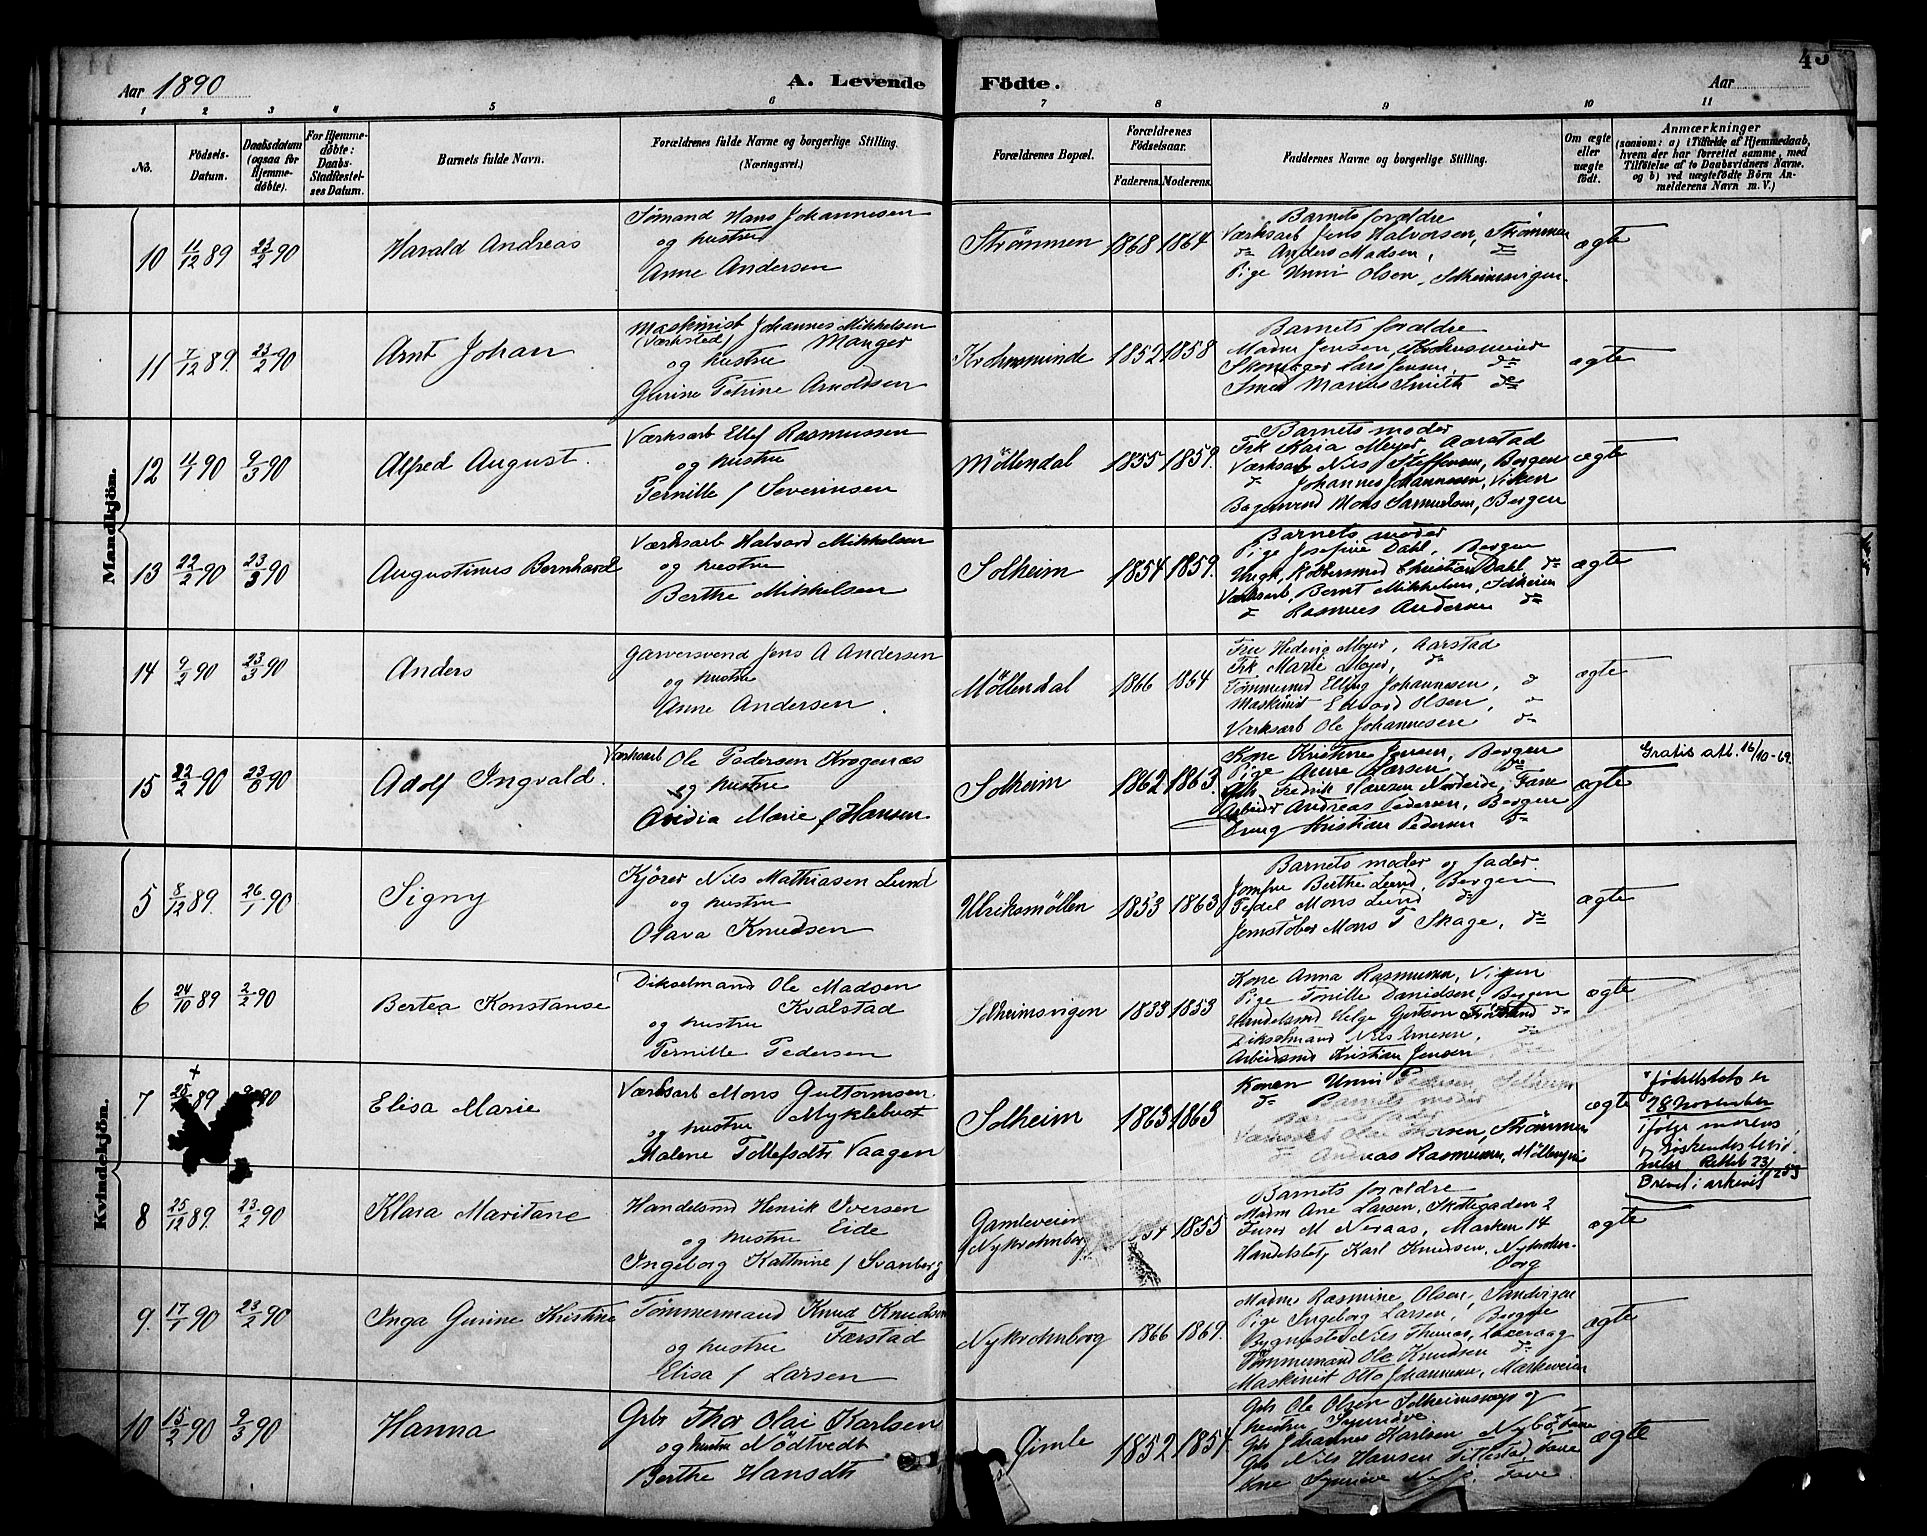 Aar 1890
A. Levende Födte.
Aar
45
1 2 3 4 5 6 7 8 9 10 11
No.
Födsels-Datum.
Daabsdatum (ogsaa for Hjemmedöbte).
For Hjemmedöbte: Daabs-Stadfæstelses Datum.
Barnets fulde Navn.
Forældrenes fulde Navne og borgerlige Stilling. (Næringsvei.)
Forældrenes Bopæl.
Forældrenes Födselsaar.
Faderens. Moderens.
Faddernes Navne og borgerlige Stilling.
Om ægte eller uægte födt.
Anmærkninger
(saasom: a) i Tilfælde af Hjemmedaab, hvem der har forrettet samme, med Tilföielse af to Daabsvidners Navne. og b) ved uægtefödte Börn Anmelderens Navn m. V.)
Mandkjön.
10 11/12 89 23/2 90 Harald Andreas
Sømand Hans Johannesen
og hustru
Anne Andersen
Strömmen 1868 1864
Barnets forældre
Værksarb Jens Halvorsen, Strömmen
do Anders Madsen, do
Pige Unni Olsen, Solheimsvigen
ægte
11 7/12 89 23/2 90 Arnt Johan
Maskinist Johannes Mikkelsen
(Værksted) Manger
og hustru
Gurine Petrine Arnoldsen
Krohnsminde 1852 1858
Barnets forældre
Madm Jensen, Krohnsminde
Skomager Lars Jensen, do
Smed Marius Smith do
ægte
12 11/1 90 9/3 90 Alfred August
Værksarb Ellef Rasmussen
og hustru
Pernille f Severinsen
Möllendal 1855 1859.
Barnets moder
Frk Kaia Meyer, Aarstad
Værksarb Nils Steffensen, Bergen
do Johannes Johannesen, Viken
Bagersvend Mons Samuelsen, Bergen
ægte
13 22/2 90 23/3 90 Augustinus Bernhard
Værksarb Halvard Mikkelsen
og hustru
Berthe Mikkelsen
Solheim 1854 1859.
Barnets moder
Pige Josefine Dahl, Bergen
Ungk, Kobbersmed Christian Dahl do
Værksarb, Bernt Mikkelsen, Solheim
do Rasmus Andersen do
ægte
14 9/2 90 23/3 90 Anders
Garversvend Jens A Andersen
og hustru
Anne Andersen
Möllendal 1866 1854
Fru Hedvig Meyer, Aarstad
Frk Marie Meyer, do
Tömmermd Elling Johannesen, do
Maskinist Edvard Olsen, do
Værksarb Ole Johannesen do
ægte
15 22/2 90 23/8 90 Adolf Ingvald
Værksarb Ole Pedersen Krogenæs
og hustru
Ovidia Marie f Hansen
Solheim 1862 1863.
Kone Kristine Jensen, Bergen
Pige Anne Larsen, do
Gbr Fredrik Hansen Nordeide, Fane
Arbeider Andreas Pedersen, Bergen
Kristian Pedersen do
ægte
Gratis att. 16/10-69.
Kvindekjön.
5 8/12 89 26/1 90 Signy
Kjörer Nils Mathiasen Lund
og hustru
Olava Knudsen
Ulriksmöllen 1853 1863
Barnets moder og fader
Jomfru Berthe Lund, Bergen
Pedel Mons Lund do
Jernstöber Mons T Skage, do
ægte
6 24/10 89 2/2 90 Bertea Konstanse
Dikselmand Ole Madsen
Kvalstad
og hustru
Pernille Pedersen
Solheimsvigen 1833 1853
Kone Anna Rasmussen, Vigen
Pige Tonille Danielsen, Bergen
Handelsmd Helge Gjertsen do
Dikselmand Nils Arnesen, do
Arbeidsmd Kristian Jensen
ægte
7 89 90 Elisa Marie
Værksarb Mons Guttormsen
Myklebust
og hustru
Malene Tollefsdtr Vaagen
Solheim 1863 1863
Konen Unni Pedersen, Solheim
do Barnets moder
fader
Strömmen
do Andreas Rasmussen, Möllendal
ægte
Födselsdato er
28 November
ifølge morens
Rettet 23/2 53
Brevet i arkivet
8 25/12 89. 23/2 90 Klara Maritane
Handelsmd Henrik Iversen
Eide
og hustru
Ingeborg Kathrine f Svanberg
Gamleveien
Nykrohnborg 1855
Barnets forældre
Madm Ane Larsen, Skottegaden 2
M Neraas, Marken 14
Handelsbetj Karl Knudsen, Nykrohnborg
ægte
9. 17/1 90 23/2 90 Inga Gurine Kristine
Tömmermand Knud Knudsen
Færstad
og hustru
Elisa f Larsen
Nykrohnborg 1866 1869.
Madme Rasmine Olsen, Sandvigen
Pige Ingeborg Larsen, Bergen
Bygmester Nils Thunæs, Laxevaag
Tömmermand Ole Knudsen do
Maskinist Otto Johannesen, Markeveien
ægte
10 15/2 90 9/3 90 Hanna
Gbr Thor Olai Karlsen
og hustru Nödtvedt
Berthe Hansdtr
Øimle 1852 1854
Gbr Ole Olsen Solheimsvigen og
hustru Synnöve
Gbr Johannes Karlsen Nyböbane
Gbr Nils Hansen Titlestad Fane
Kone Synnöve Fane
ægte